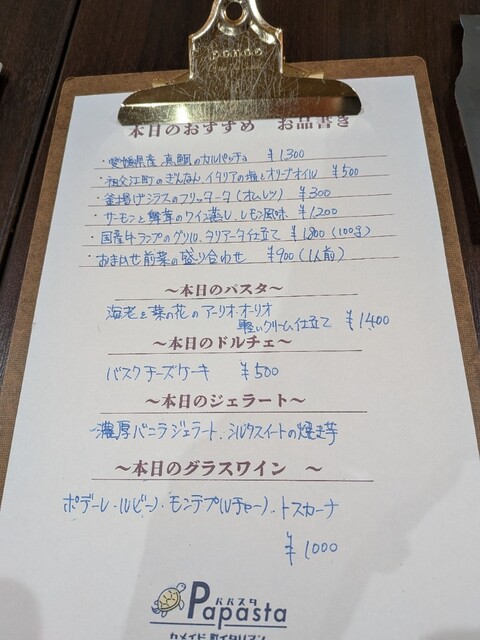 本日のおすすめ お品書き
・愛媛県産 真鯛のカルパッチョ ¥1,300
・祖父江町のぎんなん、イタリアの塩とオリーブオイル ¥500
・釜揚げシラスのフリッタータ（オムレツ） ¥300
・サーモンと舞茸のワイン蒸し、レモン風味 ¥1,200
・国産牛ランプのグリル、タリアータ仕立て ¥1,800（100g）
・おまかせ前菜の盛り合わせ ¥900（1人前）
～本日のパスタ～
海老と菜の花のアーリオ・オーリオ
軽いクリーム仕立て ¥1,400
～本日のドルチェ～
バスクチーズケーキ ¥500
～本日のジェラート～
濃厚バニラジェラート、シルクスイートの焼き芋
～本日のグラスワイン ～
ポデーレ・ルビーノ・モンテプルチャーノ・トスカーナ
¥1000
パパスタ
Papasta
カメイド町イタリアン